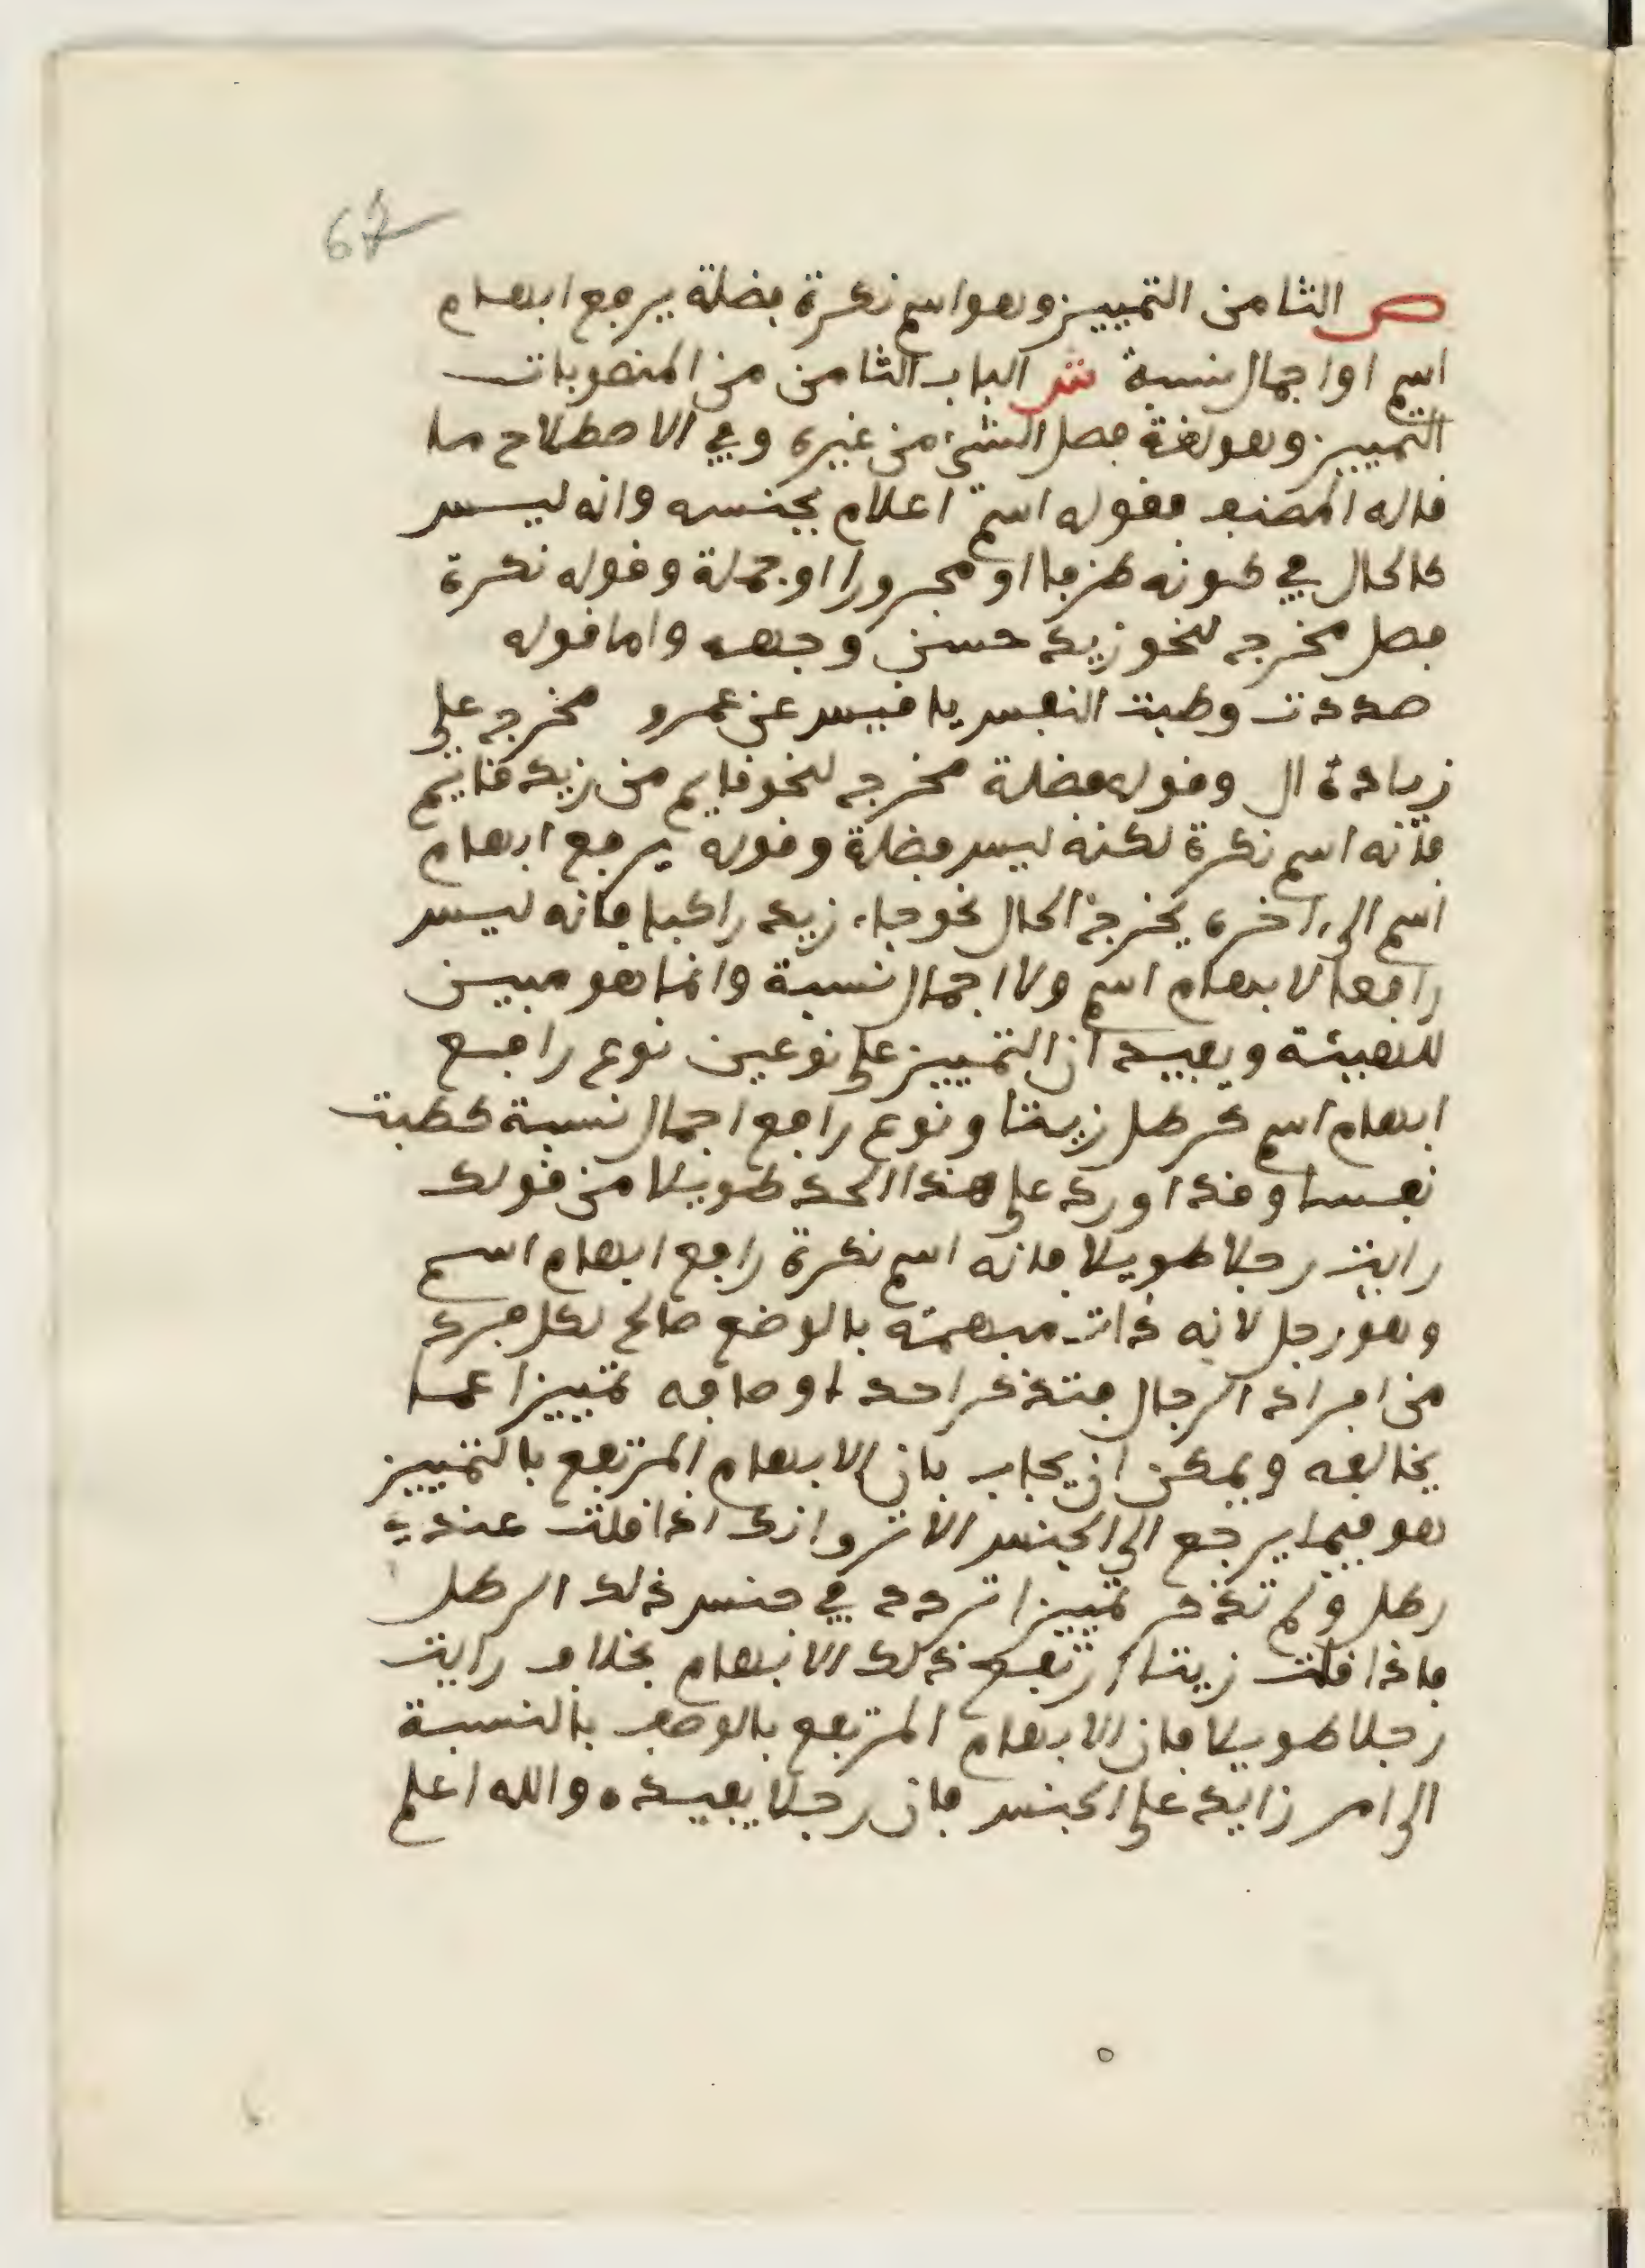 67
ص الثامن التمييز وهو اسم نكرة فضلة يرفع ابهام
اسم او اجمال نسبة ش الباب الثامن من المنصوبات
التمييز وهو لغة فصل الشيء من غيره وفي الاصطلاح ما
قاله المصنف فقوله اسم اعلام بجنسه وانه ليس
كالحال في كونه ظرفا او مجرورا او جملة وقوله نكرة
فصل مخرج لنحو زيد حسن وجهه واما قوله
صددت وطبت النفس يا قيس عن عمرو مخرج على
زيادة ال وقوله فضلة مخرج لنحو قايم من زيد قايم
فانه اسم نكرة لكنه ليس فضلة وقوله يرفع ابهام
اسم الى اخره يخرج الحال نحو جاء زيد راكبا فانه ليس
رافعا لابهام اسم ولا اجمال نسبة وانما هو مبين
للهيئة ويفيد ان التمييز على نوعين نوع رافع
ابهام اسم كرطل زيتا ونوع رافع اجمال نسبة كطبت
نفسا وقد اورد على هذا الحد طويلا من قولك
رايت رجلا طويلا فانه اسم نكرة رافع ابهام اسم
وهو رجل لانه ذات مبهمة بالوضع صالح لكل فرد
من افراد الرجال فتذكر احد اوصافه تمييزا عما
يخالفه ويمكن ان يجاب بان الابهام المرتفع بالتمييز
هو فيما يرجع الى الجنس الا تر وانك اذا قلت عندي
رطل ولم تذكر تمييزا تردد في جنس ذلك الرطل
فاذا قلت زيتا ارتفع ذلك الابهام بخلاف رايت
رجلا طويلا فان الابهام المرتفع بالوصف بالنسبة
الى امر زايد على الجنس فان رجلا يفيده والله اعلم